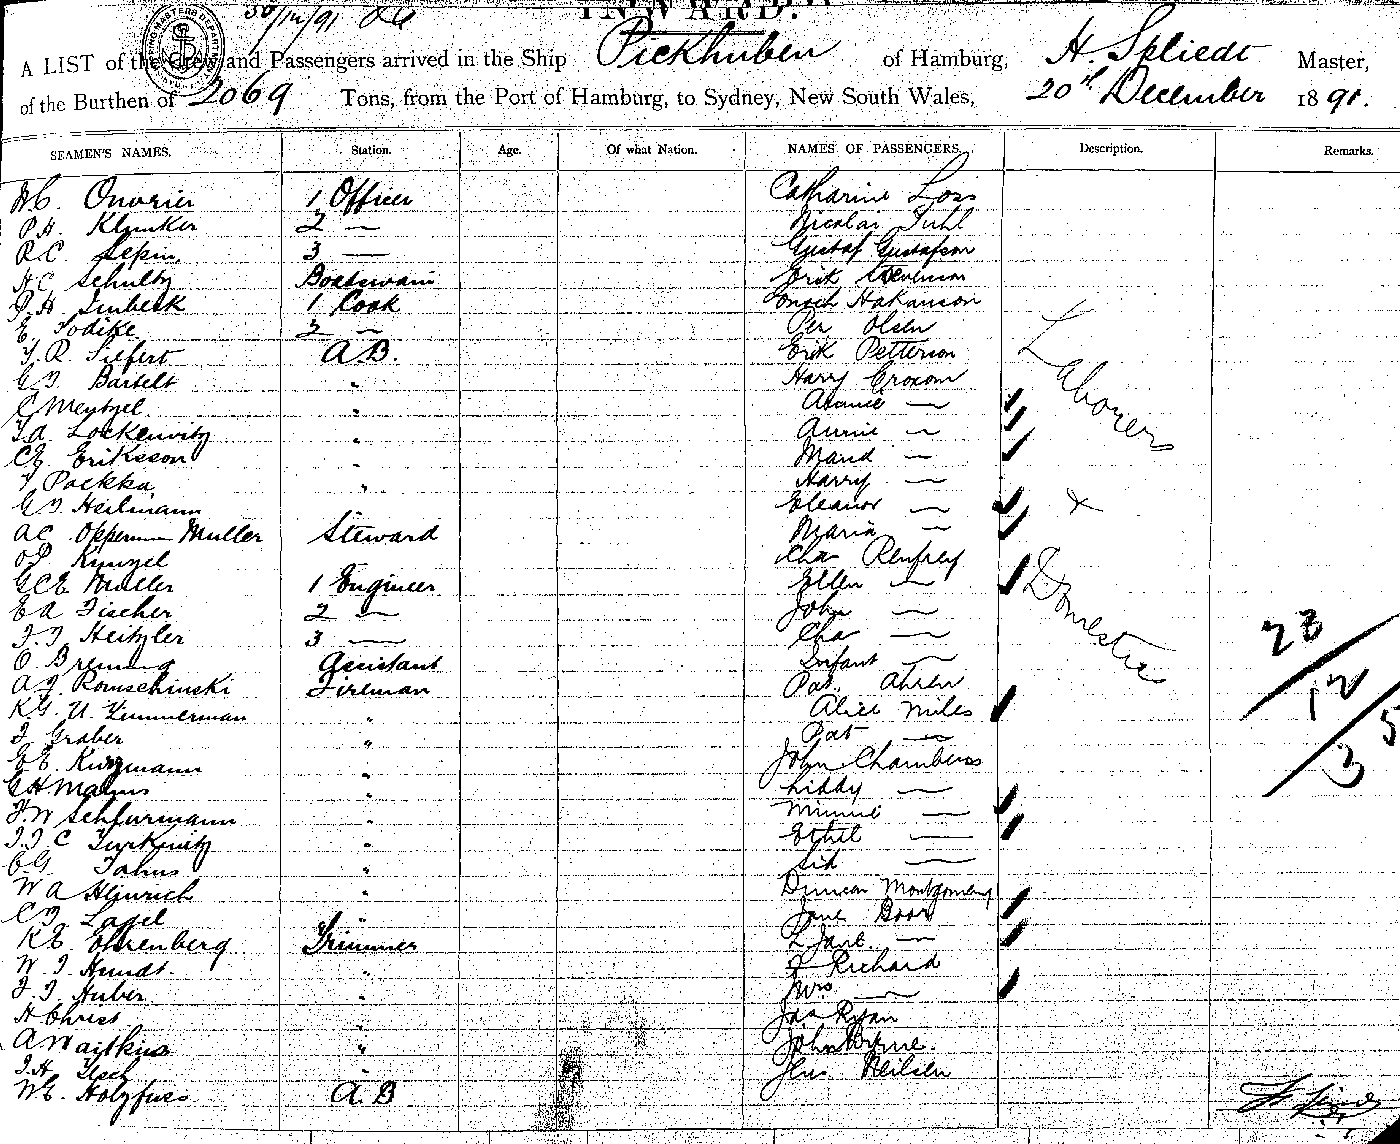 30/12/91
INWARD.
A LIST of the Crew and Passengers arrived in the Ship Pickhuben of Hamburg, H. Spliedt Master,
of the Burthen of 2069 Tons, from the Port of Hamburg, to Sydney, New South Wales, 20th December 1891.
SEAMEN'S NAMES. Station. Age. Of what Nation. NAMES OF PASSENGERS. Description. Remarks.
Onorier 1 Officer Catharine Loss
P.H. Klunker 2 — Nicolai Juhl
R C. Lepin 3 — Gustaf Gustafson
H C Schultz Boatswain Erik
P H Limbeck 1 Cook Hakanson
E Todike 2 — Per Olsen
F. R. Siefert A B. Erik Petterson
G F Bartelt " Harry Croxom
C Mentzel "  —
F A Lockenvitz " Annie —
C E Eriksson " Maud —
F Paekka " Harry —
G F Heilmann Eleanor —
A C Opperman Muller Steward Maria —
O P Kunzel Cha Renfrey
G C E Muller 1 Engineer Ellen —
E A Fischer 2 — John —
F. F Heitzler 3 — Cha —
O. Breming Assistant Infant —
A F. Romschinski Fireman Pat. Ahren
K G. U. Zimmerman " Alice Miles
F Graber " Pat —
E E. Kurzmann " John Chambers
G H Malms " Libby —
F. W Schfurmann " Minnie —
F. F C Turknitz " Ethel —
C G Johns " Sid —
W A Heinrich " Duncan Montgomery
C F Lagel " Jane Boor
K E. Ehrenberg Trimmer L Jane —
W. F Hundt " F Richard
F. F. Huber " Mrs —
H Christ " Jas Ryan
A Waitkus " John Byrne.
F. H "  Jens Neilsen
W E. Holzfuss A. B
Laborers
+
Domestics
23
12
3
5